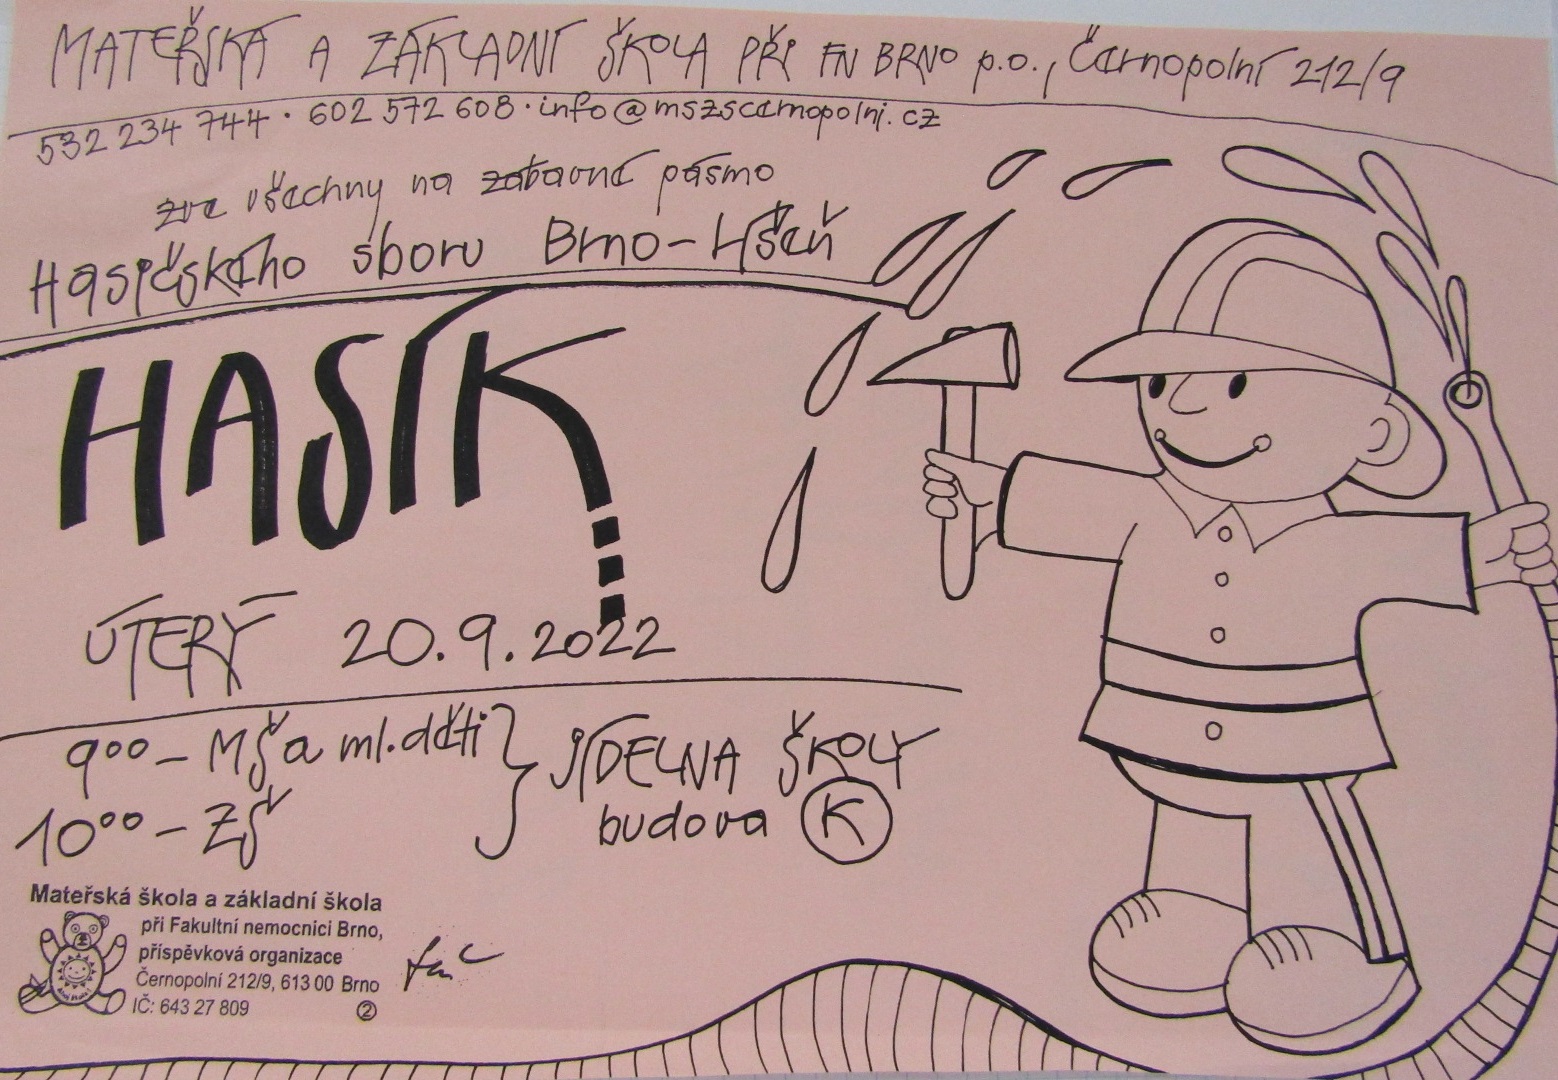 MATEŘSKÁ A ZÁKLADNÍ ŠKOLA PŘI FN BRNO p.o., Černopolní 212/9
532 234 744 · 602 572 608 · info@mszscernopolni.cz
zve všechny na zábavné pásmo
Hasičského sboru Brno-Líšeň
HASÍK
ÚTERÝ 20.9.2022
9⁰⁰ – MŠ a ml. děti } JÍDELNA ŠKOLY
10⁰⁰ – ZŠ budova K
Mateřská škola a základní škola
při Fakultní nemocnici Brno,
příspěvková organizace
Černopolní 212/9, 613 00 Brno
IČ: 643 27 809 ②